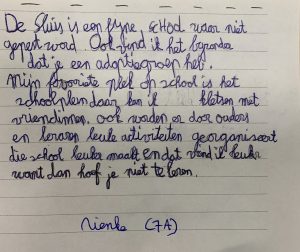 De Sluis is een fyne, school waar niet
gepest word. Ook vind ik het byzonder
dat je een adoptiegroep heb.
Mijn favoriete plek op school is het
schoolplein daar kan ik kletsen met
vriendinnen. ook worden er door ouders
en leraren leuke activiteiten georganiseert
die school leuker maakt en dat vind ik leuker
want dan hoef je niet te leren.
Nienke (7A)